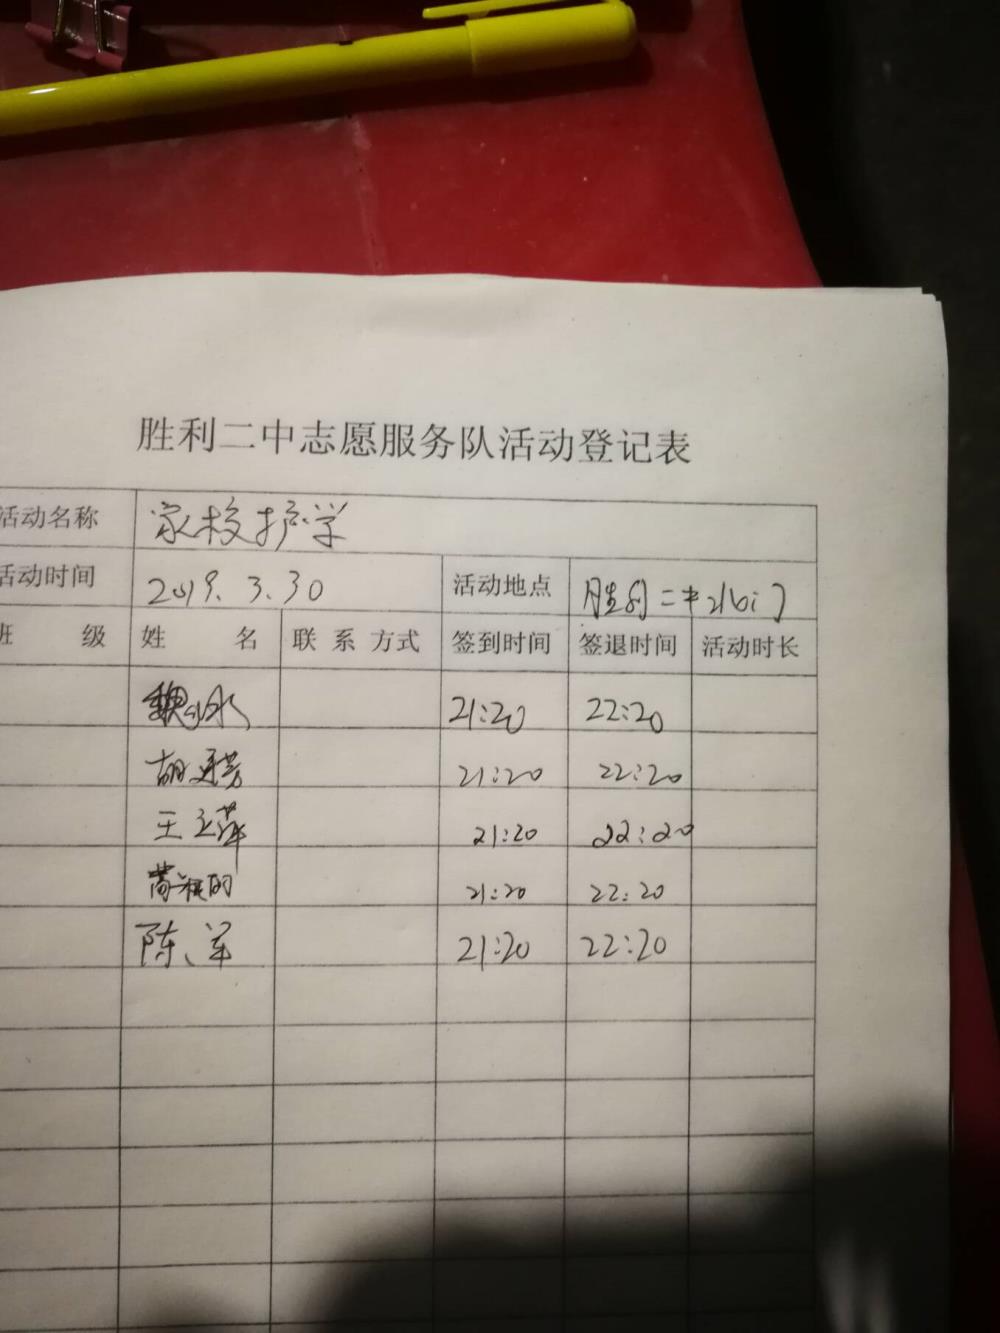 胜利二中志愿服务队活动登记表
活动名称 家校护学
活动时间 2019.3.30 活动地点 胜利二中北门
班 级 姓 名 联 系 方式 签到时间 签退时间 活动时长
魏 21:20 22:20
胡 21:20 22:20
王立萍 21:20 22:20
21:20 22:20
陈军 21:20 22:20